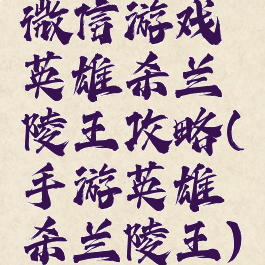 微信游戏
英雄杀兰
陵王攻略(
手游英雄
杀兰陵王)